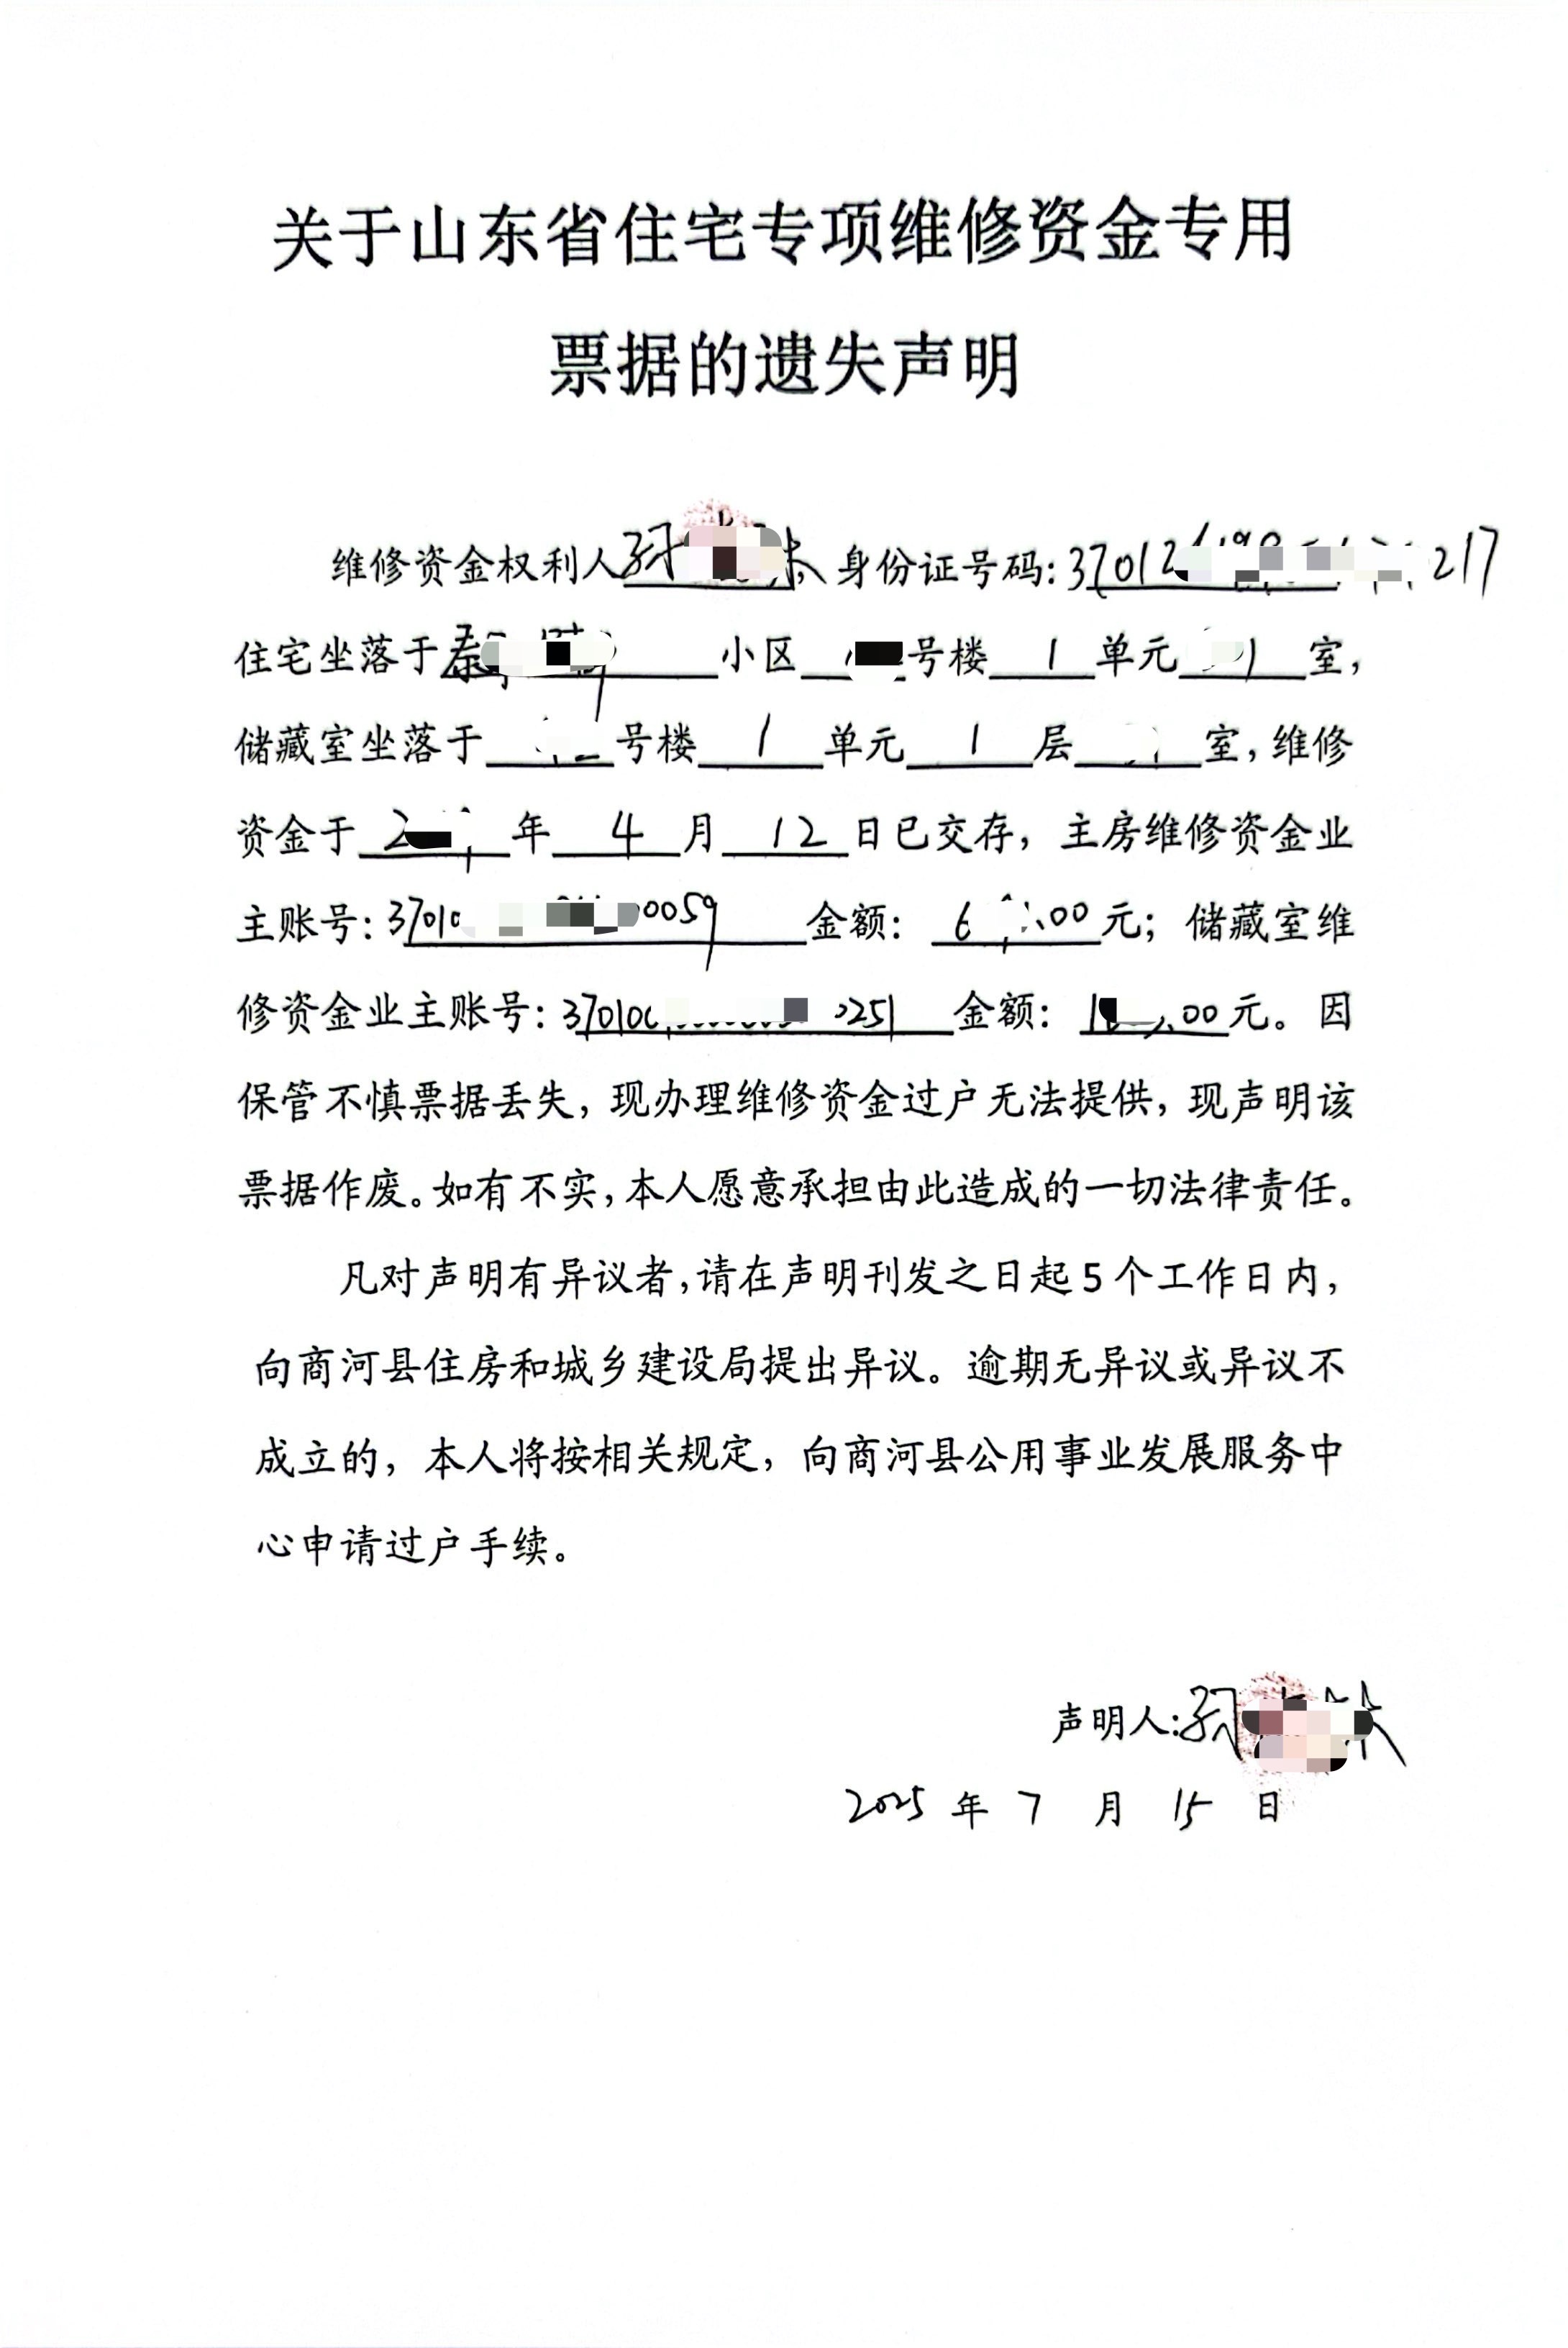 关于山东省住宅专项维修资金专用
票据的遗失声明
维修资金权利人 身份证号码: 37012 217
住宅坐落于 小区 号楼 1 单元 室,
储藏室坐落于 号楼 1 单元 1 层 室, 维修
资金于 年 4 月 12 日已交存, 主房维修资金业
主账号: 3701 0059 金额: 6 .00 元; 储藏室维
修资金业主账号: 37010 0251 金额: 1 .00 元。因
保管不慎票据丢失, 现办理维修资金过户无法提供, 现声明该
票据作废。如有不实, 本人愿意承担由此造成的一切法律责任。
凡对声明有异议者, 请在声明刊发之日起 5 个工作日内,
向商河县住房和城乡建设局提出异议。逾期无异议或异议不
成立的, 本人将按相关规定, 向商河县公用事业发展服务中
心申请过户手续。
声明人:
2025 年 7 月 15 日